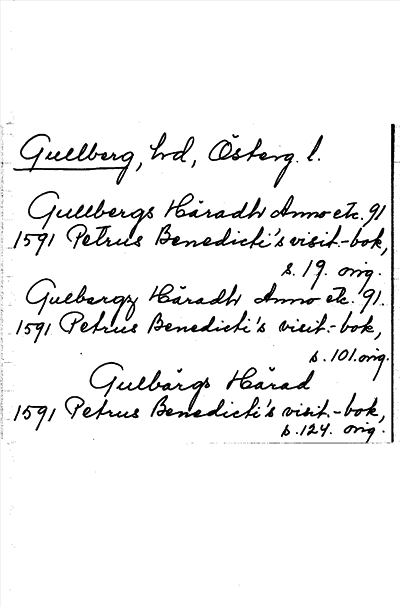 Gullberg, hd, Österg. l.
Gullbergs Häradh Anno etc. 91
1591 Petrus Benedicti's visit.-bok,
s. 19. orig.
Gulbergz Häradh Anno etc. 91.
1591 Petrus Benedicti's visit.-bok,
s. 101. orig.
Gulbärgs Härad
1591 Petrus Benedicti's visit.-bok,
s. 124. orig.